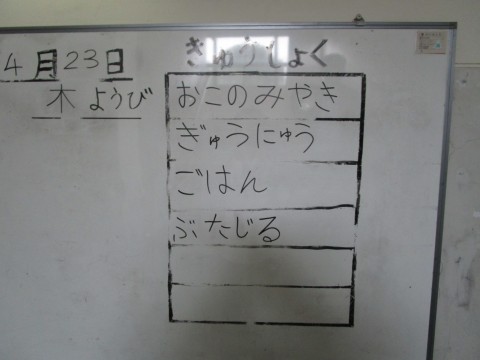 4月23日
木ようび
きゅうしょく
おこのみやき
ぎゅうにゅう
ごはん
ぶたじる